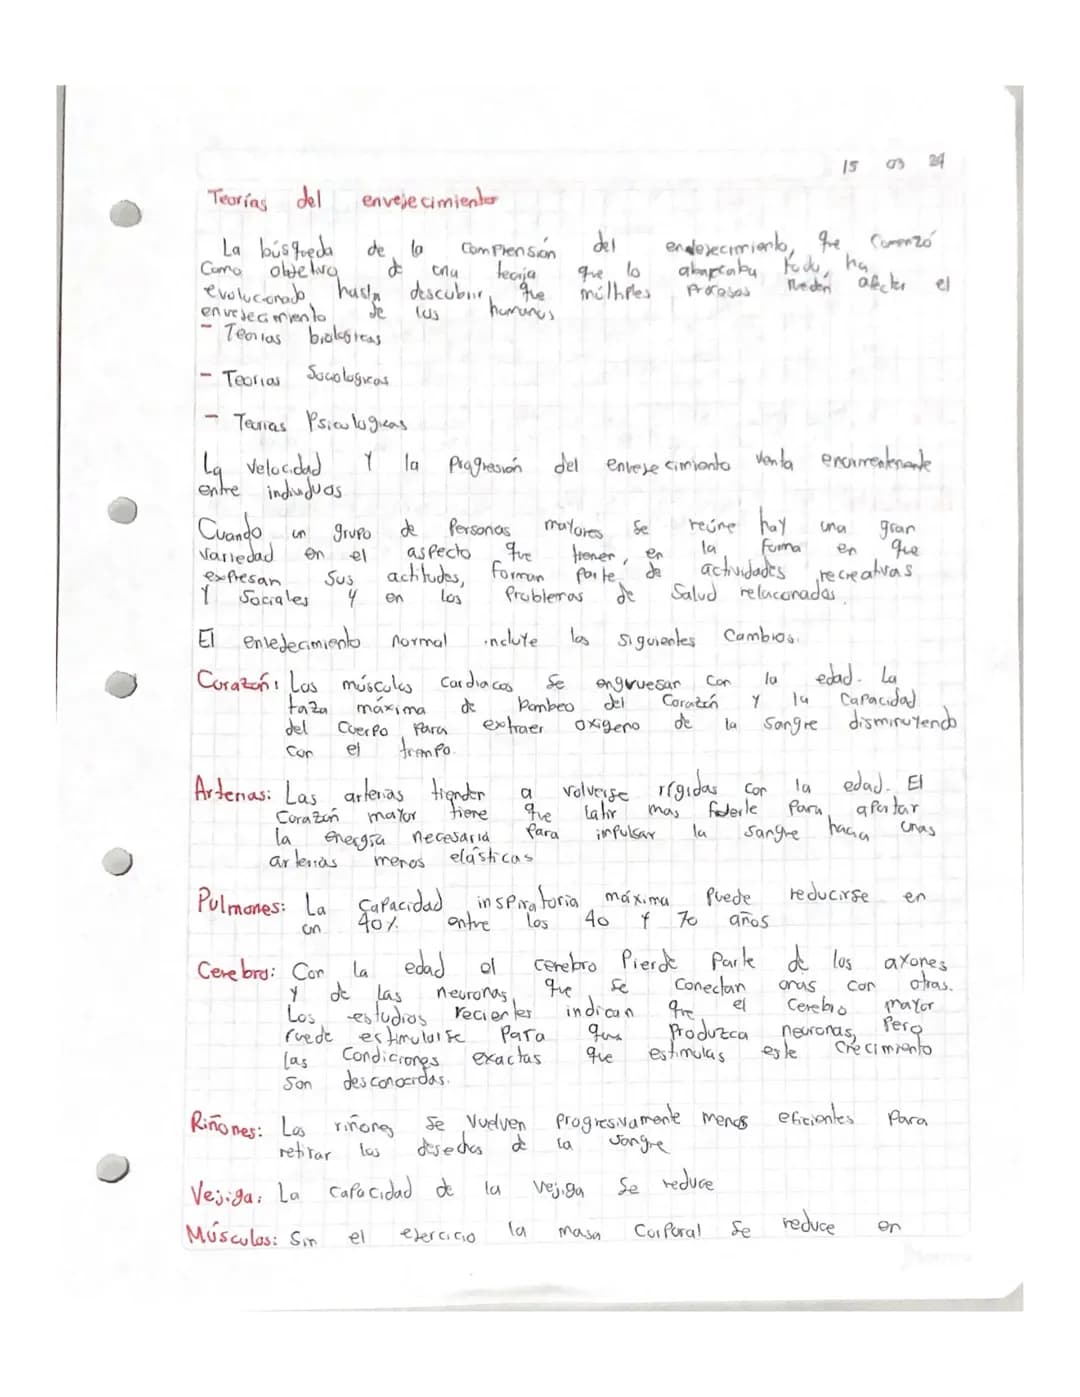 15 03 24
Teorías del envejecimiento
La búsqueda de la comprensión del envejecimiento, que comenzó
como objetivo de una teoria que lo abarcaba todo, ha
evolucionado hasta descubrir que múltiples procesos pueden afectar el
envejecimiento de los humanos
- Teorias biologicas
- Teorias Sociologicas
- Teorias Psicologicas
La velocidad Y la Progresión del envejecimiento varia enormemente
entre individuos
Cuando un grupo de Personas mayores se reúne hay una gran
variedad en el aspecto que tienen, en la forma en que
expresan sus actitudes, forman parte de actividades recreativas
Y Sociales y en los Problemas de Salud relacionados.
El envejecimiento normal incluye los siguientes Cambios.
Corazón: Los músculos cardiacos se engruesan con la edad. La
taza máxima de bombeo del Corazón Y la Capacidad
del Cuerpo Para extraer oxigeno de la sangre disminuyendo
con el tiempo.
Arterias: Las arterias tienden a volverse rígidas con la edad. El
Corazón mayor tiene que latir mas fuerte Para aportar
la energía necesaria Para impulsar la sangre hacia unas
arterias menos elásticas
Pulmones: La Capacidad inspiratoria máxima Puede reducirse en
un 40% entre los 40 Y 70 años
Cerebro: Con la edad el cerebro Pierde Parte de los axones
y de las neuronas, que se Conectan unas con otras.
Los estudios recientes indican que el Cerebro mayor
Puede estimularse Para que Produzca neuronas, Pero
las Condiciones exactas que estimulas este Crecimiento
Son desconocidas.
Riñones: Los riñones se Vuelven Progresivamente menos eficientes Para
retirar los desechos de la sangre
Vejiga: La Capacidad de la vejiga Se reduce
Músculos: Sin el ejercicio la masa Corporal Se reduce en